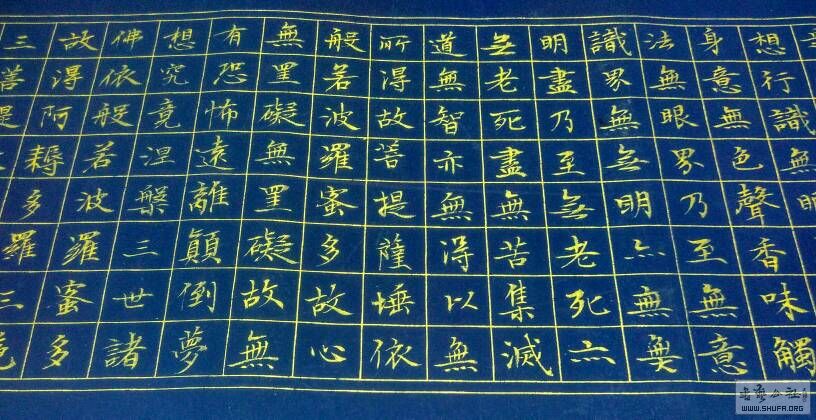 想行識無
身意無色聲香味觸
法無眼界乃至無意
識界無無明亦無無
明盡乃至無老死亦
無老死盡無苦集滅
道無智亦無得以無
所得故菩提薩埵依
般若波羅蜜多故心
無罣礙無罣礙故無
有恐怖遠離顛倒夢
想究竟涅槃三世諸
佛依般若波羅蜜多
故得阿耨多羅三
三菩提
WWW.SHUFA.ORG